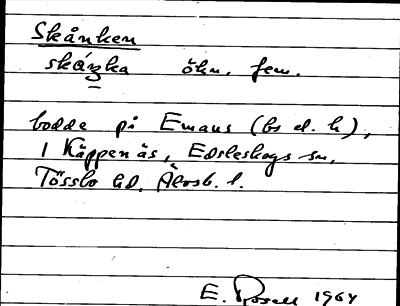 Skånken
skáŋka ökn. fem.
bodde på Emaus (bs d. h),
i Käppenäs, Edsleskogs sn,
Tössbo hd. Älvsb. l.
E. Rosell 1964